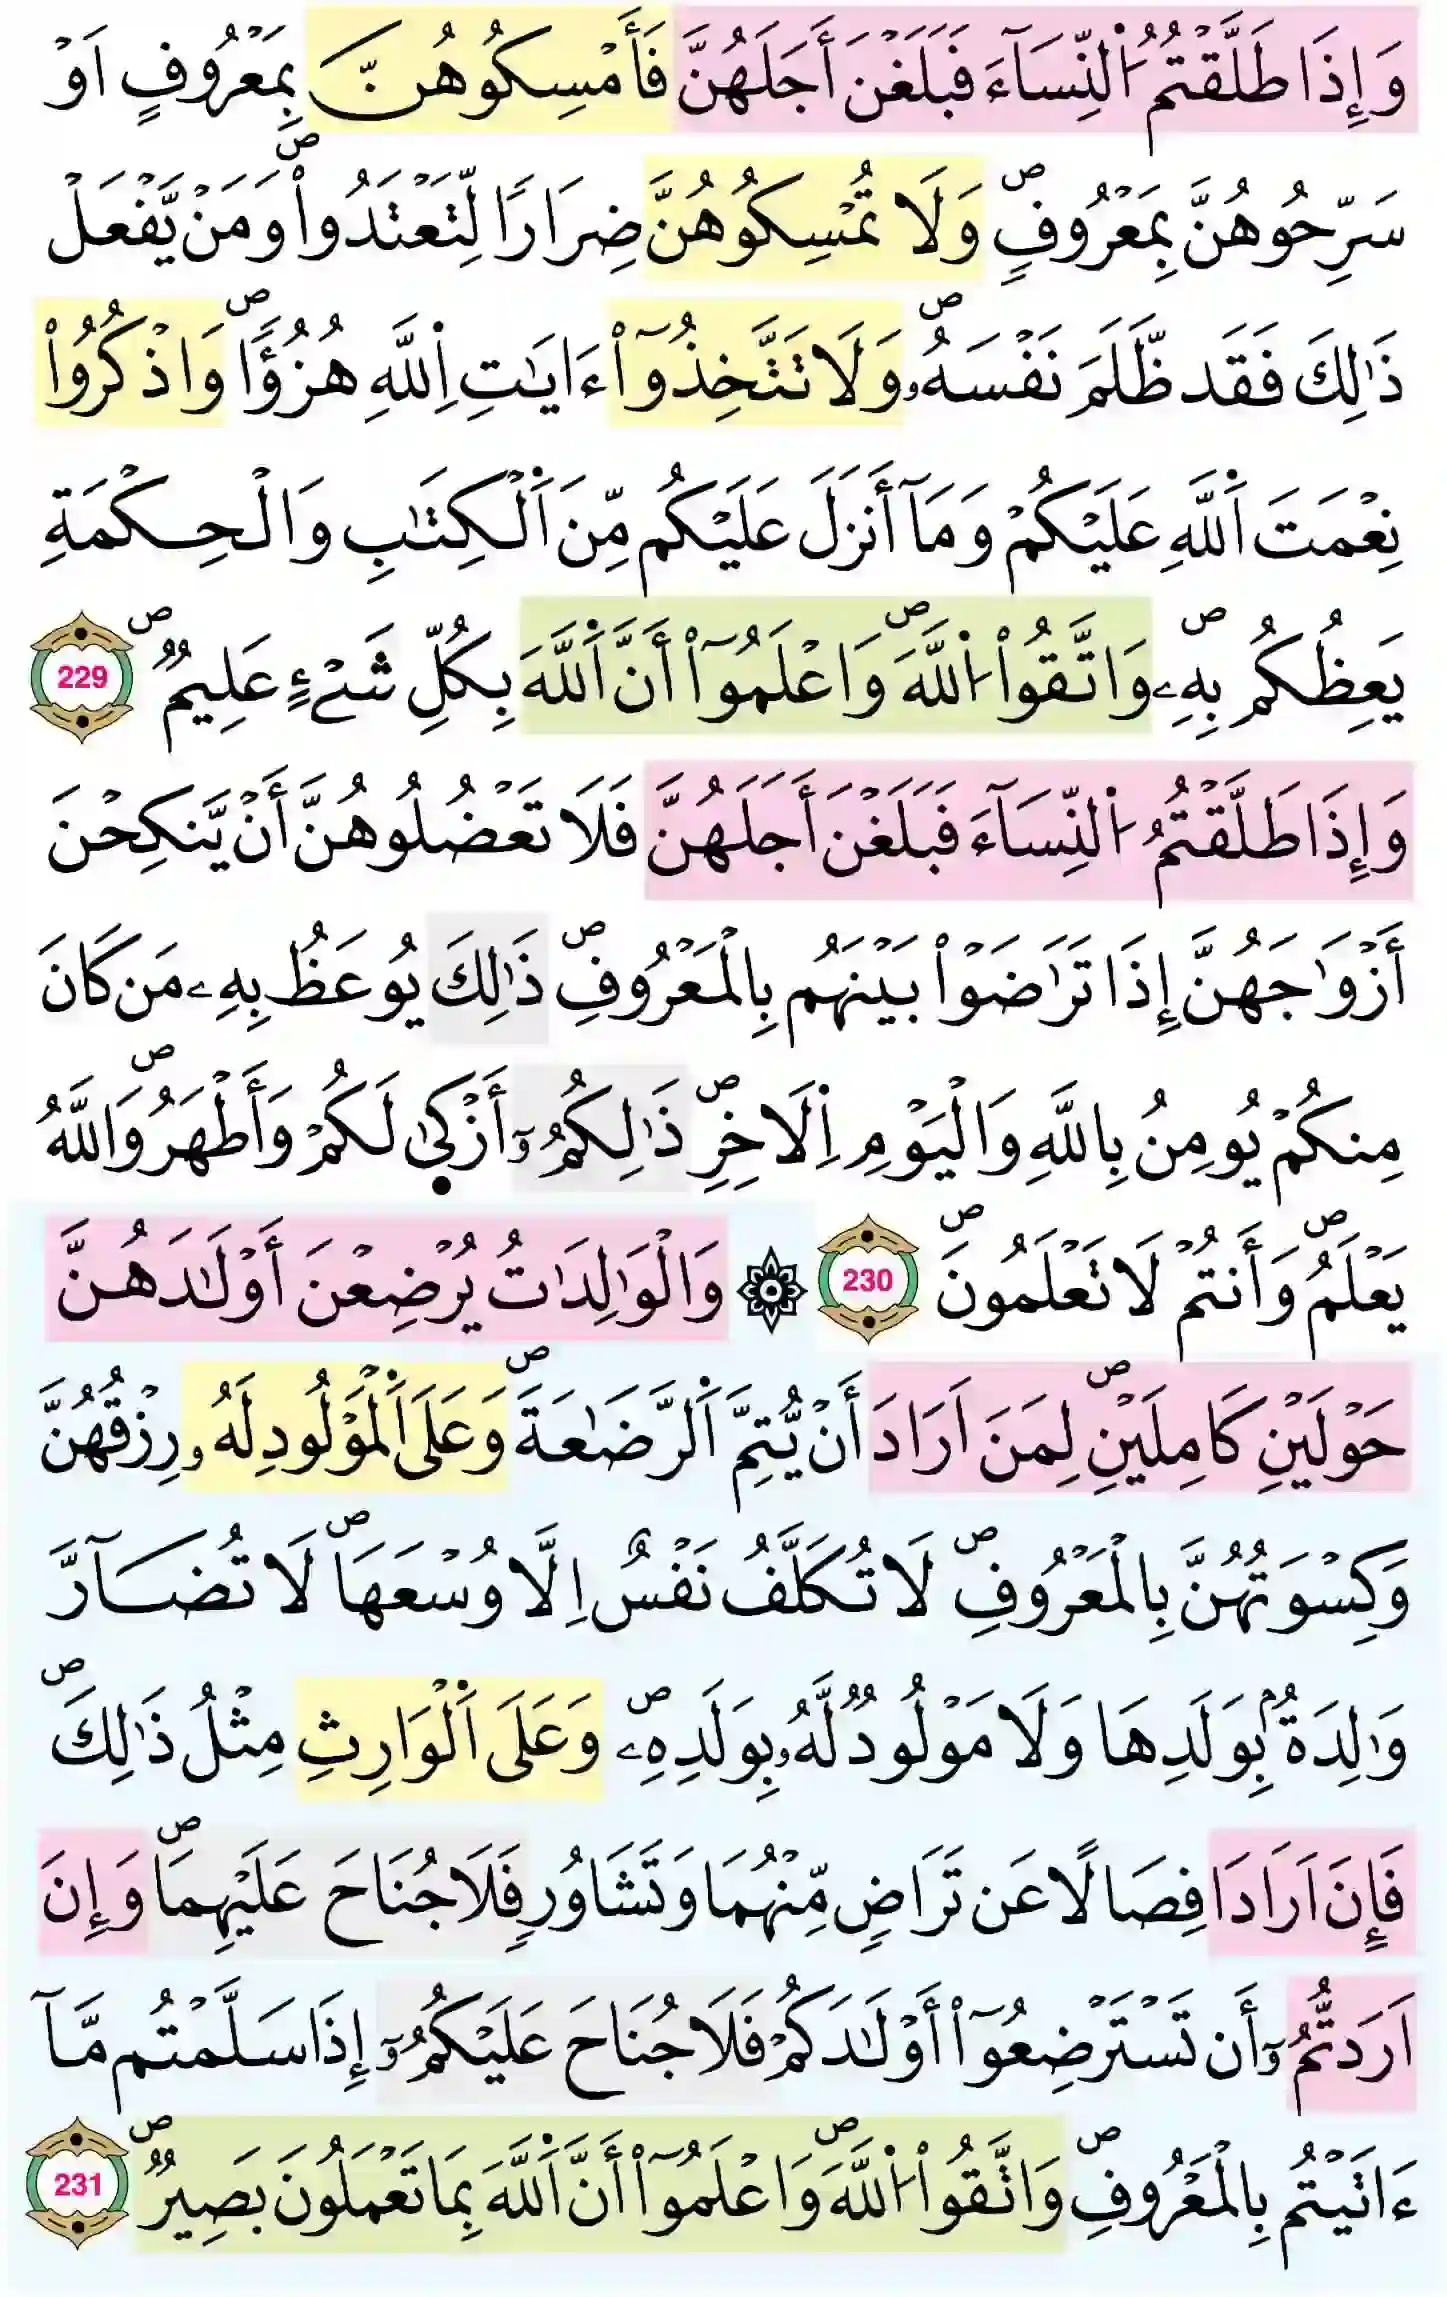 وَإِذَا طَلَّقْتُمُ اُ۬لنِّسَآءَ فَبَلَغْنَ أَجَلَهُنَّ فَأَمْسِكُوهُنَّ بِمَعْرُوفٍ اَوْ
سَرِّحُوهُنَّ بِمَعْرُوفٍۖ وَلَا تُمْسِكُوهُنَّ ضِرَارًا لِّتَعْتَدُواْۖ وَمَنْ يَّفْعَلْ
ذَٰلِكَ فَقَد ظَّلَمَ نَفْسَهُۥۖ وَلَا تَتَّخِذُوٓاْ ءَايَٰتِ اِ۬للَّهِ هُزُؤًاۖ وَاذْكُرُواْ
نِعْمَتَ اَ۬للَّهِ عَلَيْكُمْ وَمَآ أَنزَلَ عَلَيْكُم مِّنَ اَ۬لْكِتَٰبِ وَالْحِكْمَةِ
يَعِظُكُم بِهِۦۖ وَاتَّقُواْ اُ۬للَّهَۖ وَاعْلَمُوٓاْ أَنَّ اَ۬للَّهَ بِكُلِّ شَےْءٍ عَلِيمٌۖ 229
وَإِذَا طَلَّقْتُمُ اُ۬لنِّسَآءَ فَبَلَغْنَ أَجَلَهُنَّ فَلَا تَعْضُلُوهُنَّ أَنْ يَّنكِحْنَ
أَزْوَٰجَهُنَّ إِذَا تَرَٰضَوْاْ بَيْنَهُم بِالْمَعْرُوفِۖ ذَٰلِكَ يُوعَظُ بِهِۦ مَن كَانَ
مِنكُمْ يُومِنُ بِاللَّهِ وَالْيَوْمِ اِ۬لَاخِرِۖ ذَٰلِكُمُۥٓ أَزْكۭيٰ لَكُمْ وَأَطْهَرُۖ وَاللَّهُ
يَعْلَمُۖ وَأَنتُمْ لَا تَعْلَمُونَۖ 230 ۞ وَالْوَٰلِدَٰتُ يُرْضِعْنَ أَوْلَٰدَهُنَّ
حَوْلَيْنِ كَامِلَيْنِۖ لِمَنَ اَرَادَ أَنْ يُّتِمَّ اَ۬لرَّضَٰعَةَۖ وَعَلَى اَ۬لْمَوْلُودِ لَهُۥ رِزْقُهُنَّ
وَكِسْوَتُهُنَّ بِالْمَعْرُوفِۖ لَا تُكَلَّفُ نَفْسٌ اِلَّا وُسْعَهَاۖ لَا تُضَآرَّ
وَٰلِدَةُۢ بِوَلَدِهَا وَلَا مَوْلُودٌ لَّهُۥ بِوَلَدِهِۦۖ وَعَلَى اَ۬لْوَارِثِ مِثْلُ ذَٰلِكَۖ
فَإِنَ اَرَادَا فِصَالًا عَن تَرَاضٍ مِّنْهُمَا وَتَشَاوُرٍ فَلَا جُنَاحَ عَلَيْهِمَاۖ وَإِنَ
اَرَدتُّمُۥٓ أَن تَسْتَرْضِعُوٓاْ أَوْلَٰدَكُمْ فَلَا جُنَاحَ عَلَيْكُمُۥٓ إِذَا سَلَّمْتُم مَّآ
ءَاتَيْتُم بِالْمَعْرُوفِۖ وَاتَّقُواْ اُ۬للَّهَۖ وَاعْلَمُوٓاْ أَنَّ اَ۬للَّهَ بِمَا تَعْمَلُونَ بَصِيرٌۖ 231